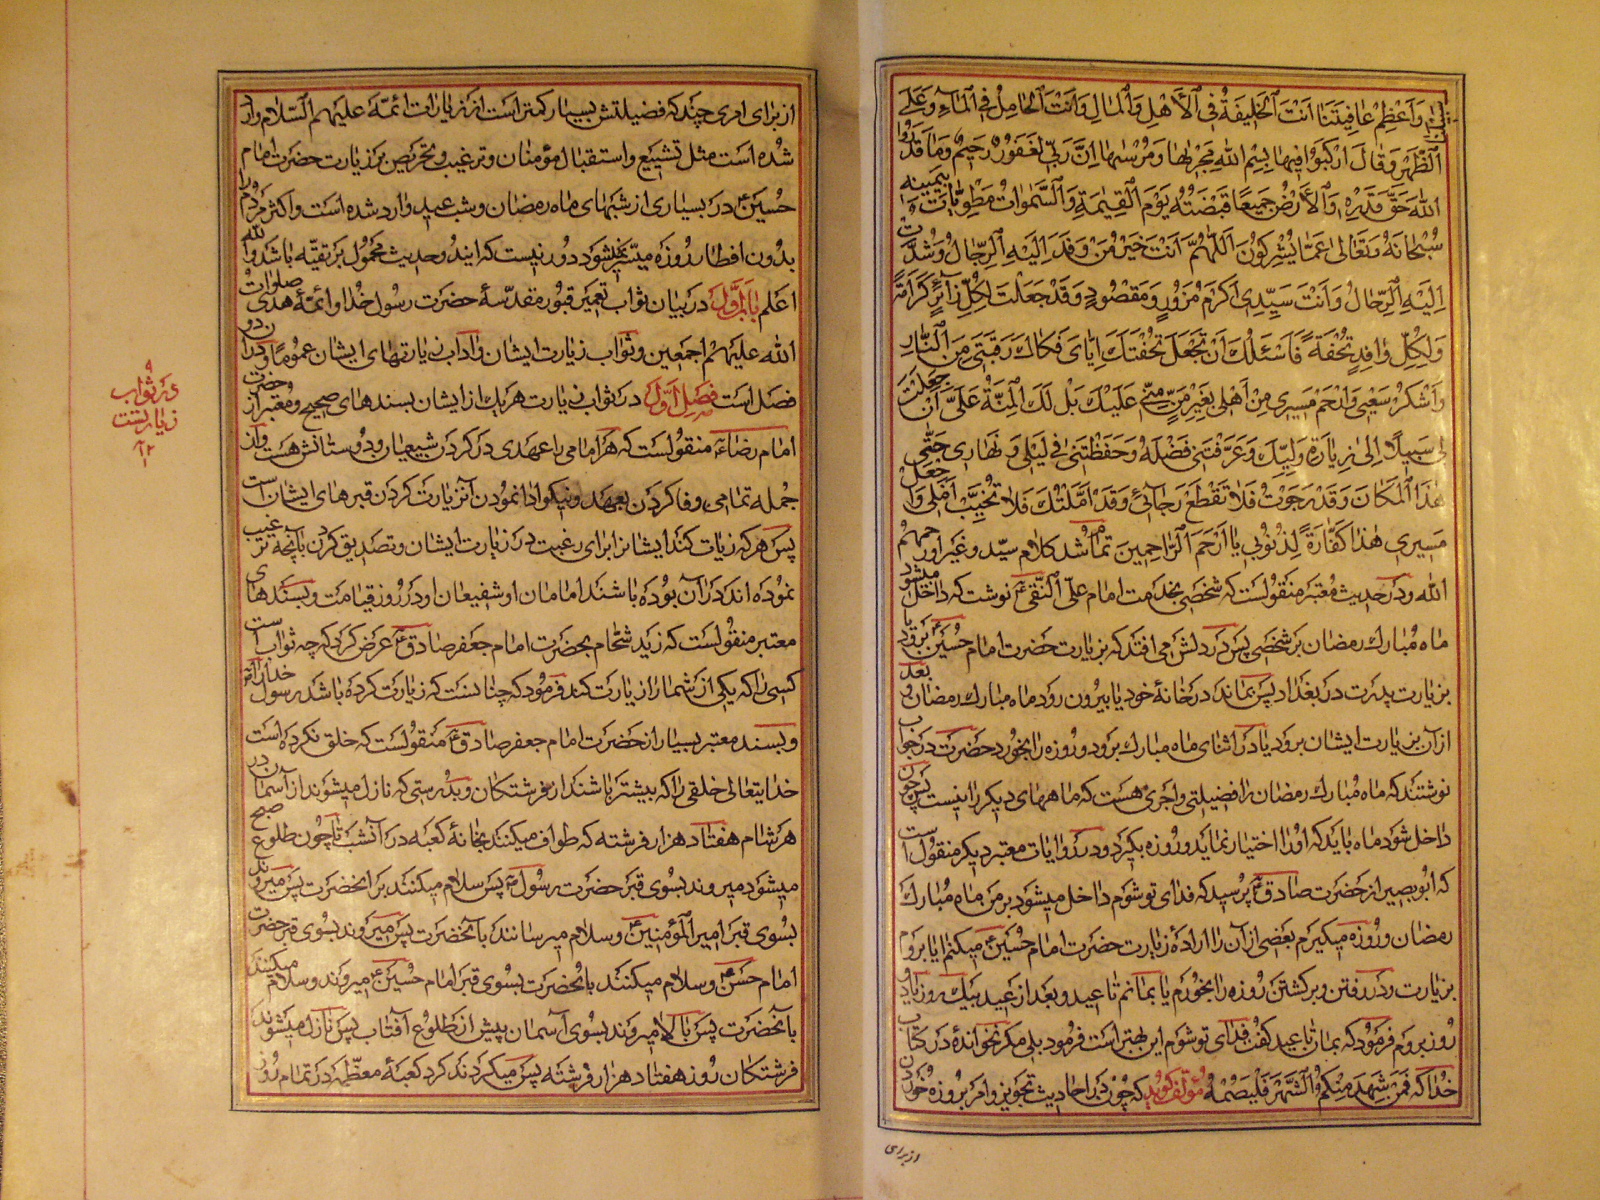 لی وَاَعْظِمْ عَافِیَتَنَا اَنْتَ الْخَلِیفَةُ فِی الْاَهْلِ وَالْمَالِ وَاَنْتَ الْحَامِلُ فِی الْمَاءِ وَعَلَی
الظَّهْرِ وَقَالَ ارْکَبُوا فِیهَا بِسْمِ اللهِ مَجْرٰیهَا وَمُرْسٰیهَا اِنَّ رَبِّی لَغَفُورٌ رَحِیمٌ وَمَا قَدَرُوا
اللهَ حَقَّ قَدْرِهِ وَالْاَرْضُ جَمِیعًا قَبْضَتُهُ یَوْمَ الْقِیٰمَةِ وَالسَّمٰوَاتُ مَطْوِیَّاتٌ بِیَمِینِهِ
سُبْحَانَهُ وَتَعَالٰی عَمَّا یُشْرِکُونَ اَللّٰهُمَّ اَنْتَ خَیْرُ مَنْ وَفَدَ اِلَیْهِ الرِّجَالُ وَشُدَّتْ
اِلَیْهِ الرِّحَالُ وَاَنْتَ سَیِّدِی اَکْرَمُ مَزُورٍ وَمَقْصُودٍ وَقَدْ جَعَلْتَ لِکُلِّ زَائِرٍ کَرَامَةً
وَلِکُلِّ وَافِدٍ تُحْفَةً فَاَسْئَلُكَ اَنْ تَجْعَلَ تُحْفَتَكَ اِیَّایَ فَکَاكَ رَقَبَتِی مِنَ النَّارِ
وَاشْکُرْ سَعْیِی وَارْحَمْ مَسِیرِی مِنْ اَهْلِی بِغَیْرِ مَنٍّ مِنِّی عَلَیْكَ بَلْ لَكَ الْمِنَّةُ عَلَیَّ اَنْ جَعَلْتَ
لِی سَبِیلًا اِلٰی زِیَارَةِ وَلِیِّكَ وَعَرَّفْتَنِی فَضْلَهُ وَحَفِظْتَنِی فِی لَیْلِی وَنَهَارِی حَتّٰی
هٰذَا الْمَکَانَ وَقَدْ رَجَوْتُكَ فَلَا تَقْطَعْ رَجَائِی وَقَدْ اَمَّلْتُكَ فَلَا تُخَیِّبْ اَمَلِی وَاجْعَلْ
مَسِیرِی هٰذَا کَفَّارَةً لِذُنُوبِی یَا اَرْحَمَ الرَّاحِمِینَ تمام شد کلام سیّد و غیر او رحمهم
الله و در حدیث معتبر منقولست که شخصی بخدمت امام علی النّقی ع نوشت که داخل میشود
ماه مبارك رمضان بر شخصی پس در دلش می افتد که بزیارت حضرت امام حسین ع برود یا
بزیارت پدرت در بغداد پس بماند در خانهٔ خود یا بیرون رود ماه مبارك رمضان و بعد
از آن بزیارت ایشان برود یا در اثنای ماه مبارك برود و روزه را بخورد حضرت در جواب
نوشتند که ماه مبارك رمضان را فضیلتی و اجری هست که ماههای دیگر را نیست پس چون
داخل شود ماه باید که او را اختیار نماید و روزه بگیرد و در روایات معتبر دیگر منقول است
که ابو بصیر از حضرت صادق ع پرسید که فدای تو شوم داخل میشود بر من ماه مبارك
رمضان و روزه میگیرم بعضی از آن را ارادهٔ زیارت حضرت امام حسین ع میکنم ایا بروم
بزیارت و در رفتن و برگشتن روزه را بخورم یا بمانم تا عید و بعد از عید بیك روز یا دو
روز بروم فرمود که بمان تا عید گفت فدای تو شوم این بهتر است فرمود بلی مگر نخواندهٔ در کتاب
خدا که فَمَنْ شَهِدَ مِنْکُمُ الشَّهْرَ فَلْیَصُمْهُ مؤلف گوید که چون در احادیث تجویز و امر بروزه خوردن
از برای
از برای امری چند که فضیلتش بسیار کمتر است از زیارات ائمّه علیهم السّلام وارد
شده است مثل تشییع و استقبال مؤمنان و ترغیب و تحریص بر زیارت حضرت امام
حسین ع در بسیاری از شبهای ماه رمضان و شب عید وارد شده است و اکثر مردم را
بدون افطار روزه میسّر نمیشود دور نیست که ایندو حدیث محمول بر تقیّه باشد والله
اعلم باب اوّل در بیان ثواب تعمیر قبور مقدّسهٔ حضرت رسول خدا و ائمّهٔ هدی صلوات
الله علیهم اجمعین و ثواب زیارت ایشان و آداب زیارتهای ایشان عموما و در آن دو
فصل است فصل اوّل در ثواب زیارت هریك از ایشان بسندهای صحیح و معتبر از حضرت
امام رضا ع منقولست که هر امامی را عهدی در گردن شیعیان و دوستانش هست و از
جمله تمامی وفا کردن بعهد و نیکو ادا نمودن آن زیارت کردن قبرهای ایشان است
پس هر که زیارت کند ایشانرا برای رغبت در زیارت ایشان و تصدیق کردن بآنچه ترغیب
نموده اند در آن بوده باشند امامان او شفیعان او در روز قیامت و بسندهای
معتبر منقولست که زید شحّام بحضرت امام جعفر صادق ع عرض کرد که چه ثواب است
کسی را که یکی از شما را زیارت کند فرمود که چنانست که زیارت کرده باشد رسول خدا را
و بسند معتبر بسیار از حضرت امام جعفر صادق ع منقولست که خلق نکرده است
خدایتعالی خلقی را که بیشتر باشند از فرشتکان و بدرستی که نازل میشوند از آسمان در
هر شام هفتاد هزار فرشته که طواف میکنند بخانهٔ کعبه در آنشب تا چون طلوع صبح
میشود میروند بسوی قبر حضرت رسول ص پس سلام میکنند بر آنحضرت پس میروند
بسوی قبر امیر المؤمنین ع و سلام میرسانند بآنحضرت پس میروند بسوی قبر حضرت
امام حسن ع و سلام میکنند بآنحضرت بسوی قبر امام حسین ع میروند و سلام میکنند
بآنحضرت پس بالا میروند بسوی آسمان پیش از طلوع آفتاب پس نازل میشوند
فرشتکان روز هفتاد هزار فرشته پس میگردند گرد کعبهٔ معظّمه در تمام روز
در ثواب
زیارتست